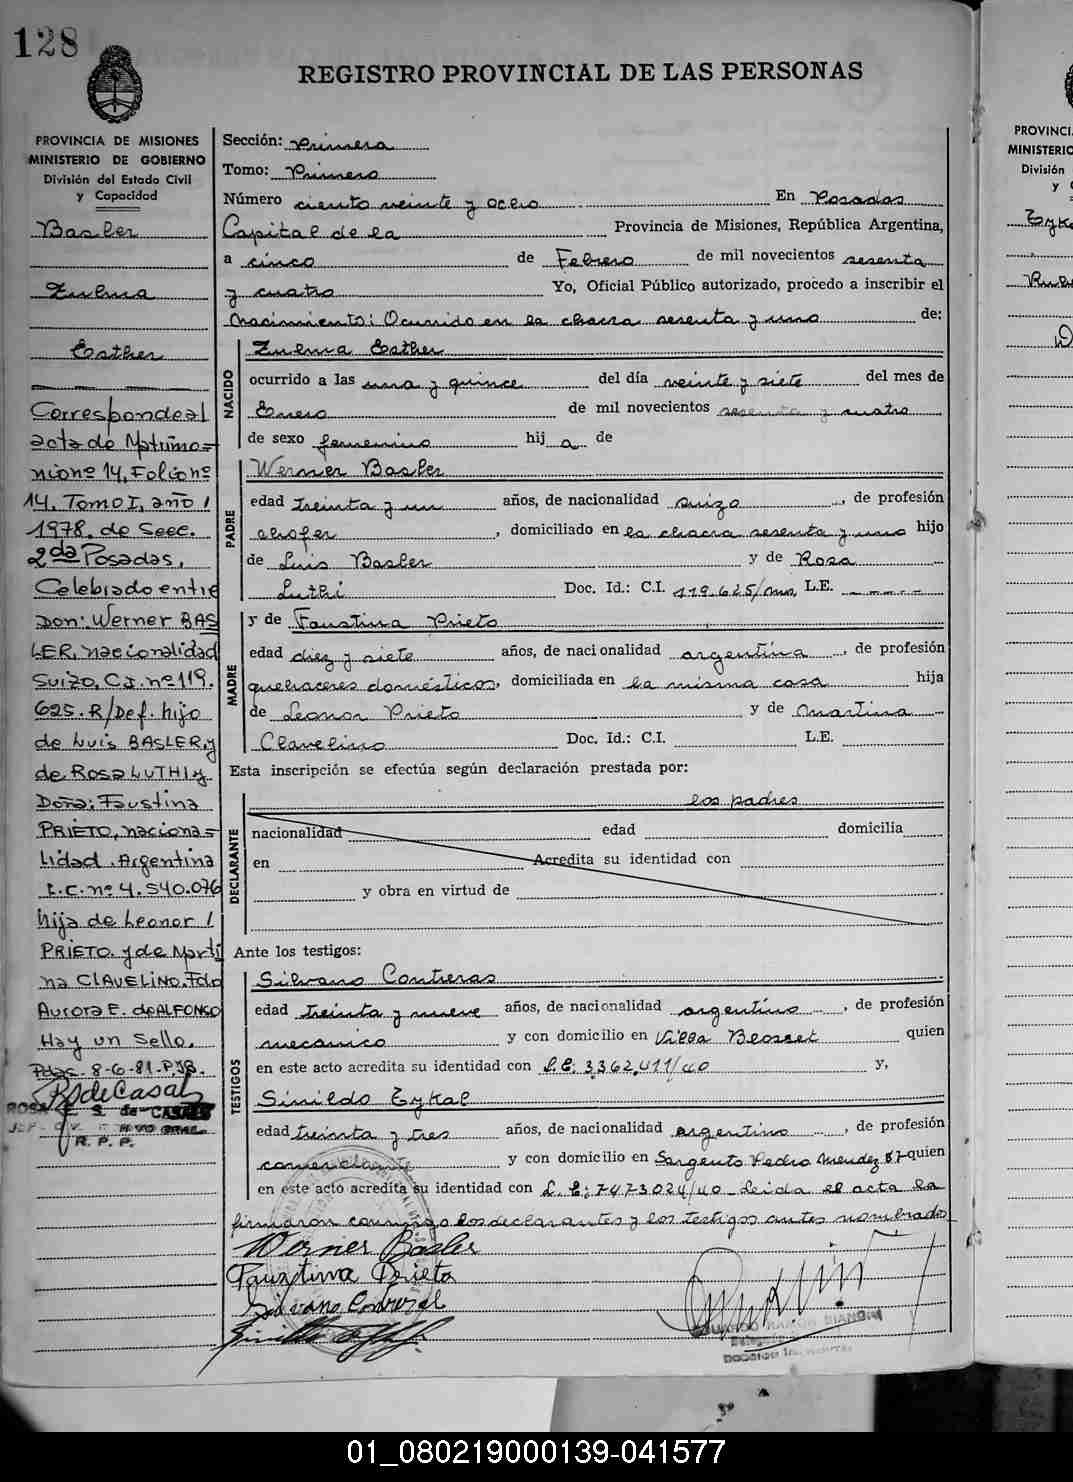 128
REGISTRO PROVINCIAL DE LAS PERSONAS
PROVINCIA DE MISIONES
MINISTERIO DE GOBIERNO
División del Estado Civil
y Capacidad
Basler
Zulma
Esther
Corresponde al
acta de Matrimo=
nio nº 14, Folio nº
14, Tomo I, año 1
1978, de Secc.
2da Posadas,
Celebrado entre
Don: Werner BAS
LER, nacionalidad
Suizo, C.I. nº 119.
625. R/Def. hijo
de Luis BASLER, y
de Rosa LUTHI y
Doña: Faustina
PRIETO, naciona=
lidad Argentina
L.C. nº 4.540.076
hija de Leonor /
PRIETO y de Marti
na CLAVELINO. Fdo
Aurora E. de ALFONSO
Hay un Sello.
Pdas. 8-6-81-
RS de Casal
ROSA S. de
R. P. P.
Sección: Primera
Tomo: Primero
Número ciento veinte y ocho En Posadas
Capital de la Provincia de Misiones, República Argentina,
a cinco de Febrero de mil novecientos sesenta
y cuatro Yo, Oficial Público autorizado, procedo a inscribir el
Nacimiento: Ocurrido en la chacra sesenta y uno de:
NACIDO
Zulma Esther
ocurrido a las una y quince del día veinte y siete del mes de
Enero de mil novecientos sesenta y cuatro
de sexo femenino hij a de
PADRE
Werner Basler
edad treinta y un años, de nacionalidad suizo, de profesión
chofer, domiciliado en la chacra sesenta y uno hijo
de Luis Basler y de Rosa
Luthi Doc. Id.: C.I. 119.625/ L.E. ------
y de Faustina Prieto
MADRE
edad diez y siete años, de nacionalidad argentina, de profesión
quehaceres domésticos, domiciliada en la misma casa hija
de Leonor Prieto y de Martina
Clavelino Doc. Id.: C.I. L.E.
Esta inscripción se efectúa según declaración prestada por:
los padres
DECLARANTE
nacionalidad edad domicilia
en Acredita su identidad con
y obra en virtud de
Ante los testigos:
TESTIGOS
Silvano Contreras
edad treinta y nueve años, de nacionalidad argentino, de profesión
mecánico y con domicilio en Villa Blosset quien
en este acto acredita su identidad con L.E: 3.362.411/40 y,
Sinildo Zykal
edad treinta y tres años, de nacionalidad argentino, de profesión
comerciante y con domicilio en Sargento Pedro Mendez 87 quien
en este acto acredita su identidad con L.E: 7473024/40 Leida el acta la
firmaron conmigo los declarantes y los testigos antes nombrados
Werner Basler
Fauztina Prieto
PROVINCI
MINISTERIO
División
y C
01_080219000139-041577